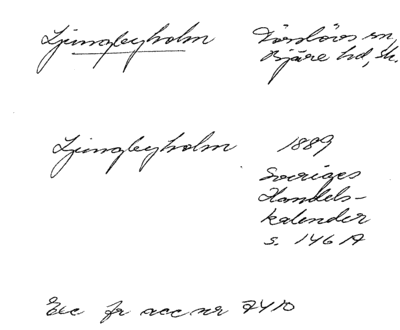 Ljungbyholm
Förslövs sn,
Bjäre hd, Sk.
Ljungbyholm
1889
Sveriges
Handels-
kalender
s. 146 A
Exc fr acc nr 7410